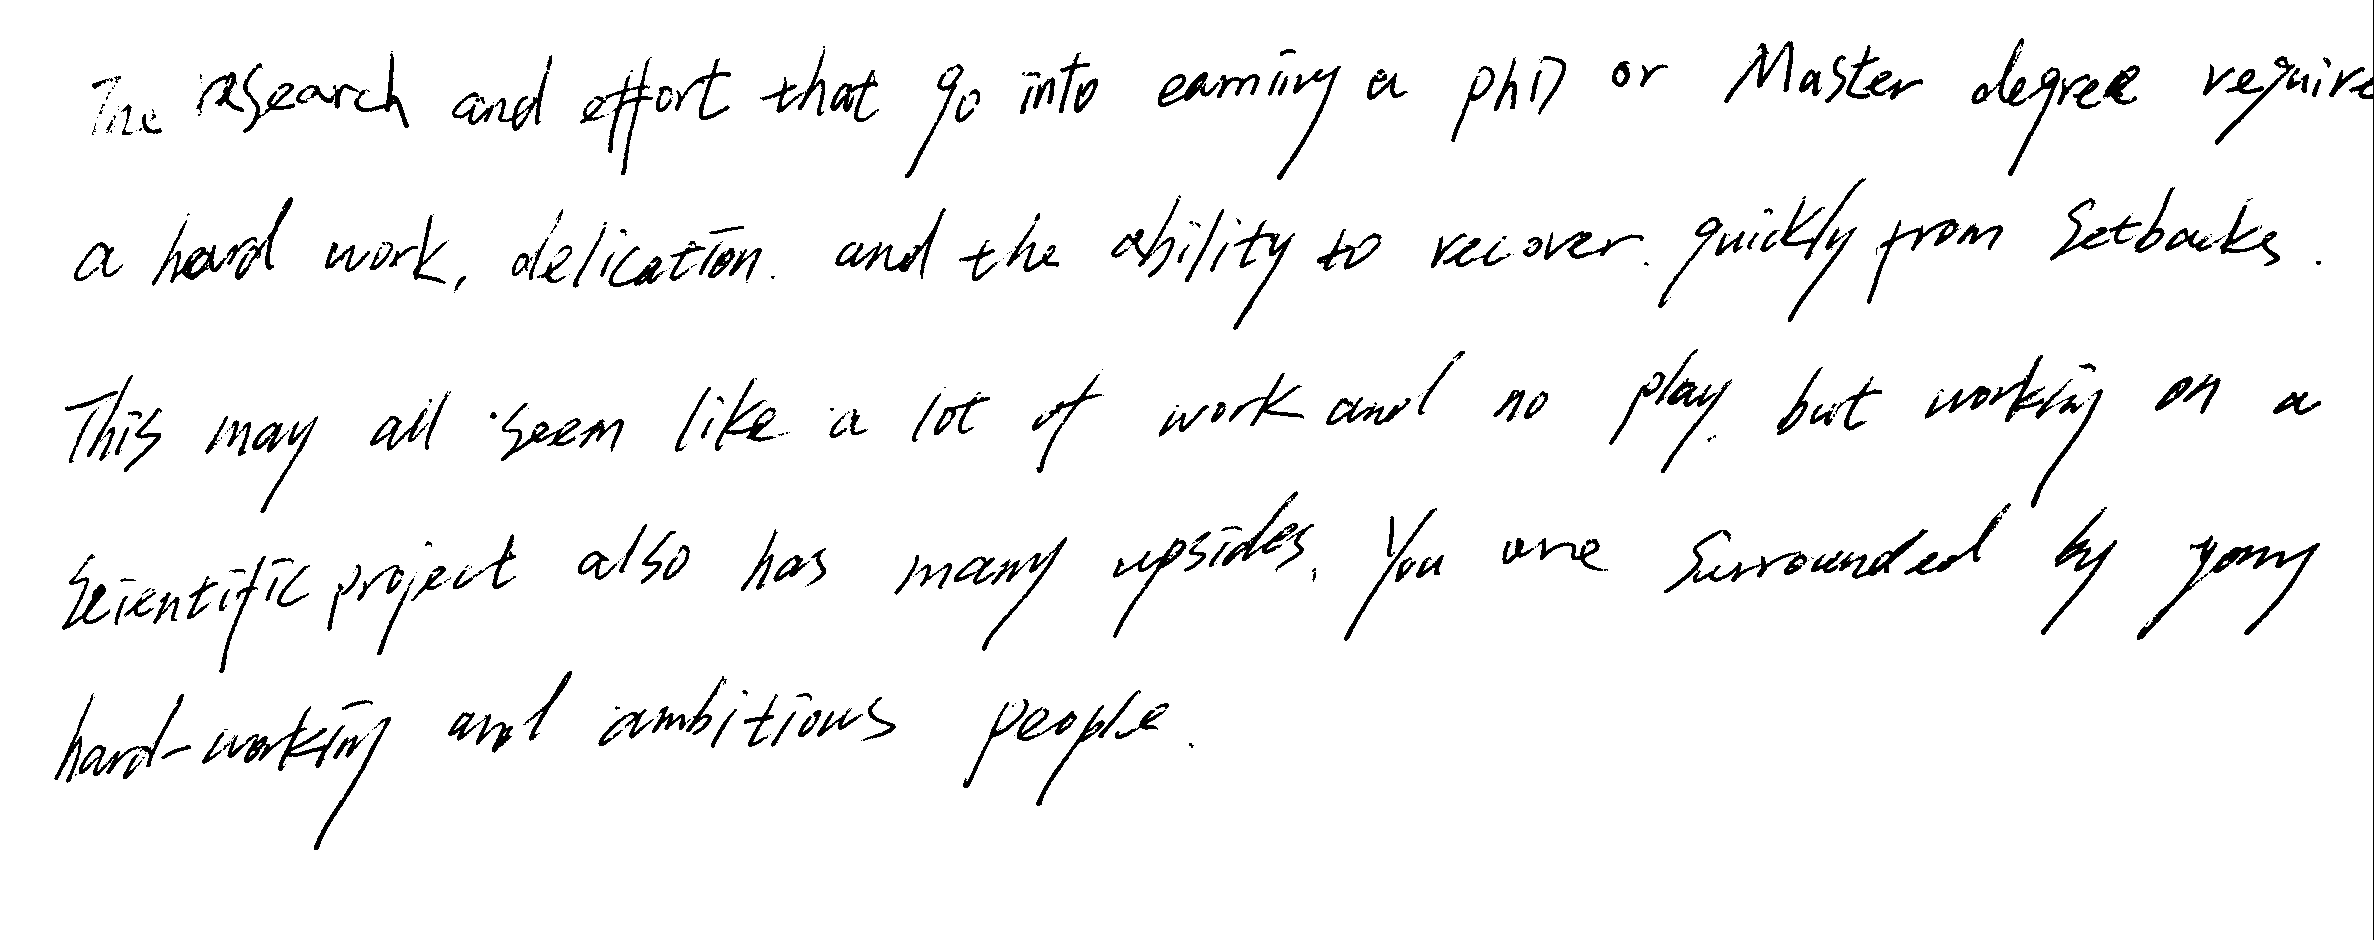 The research and effort that go into earning a phD or Master degree require
a hard work, delication. and the ability to recover. quickly from setbacks.
This may all seem like a lot of work and no play. but working on a
Scientific project also has many upsides. You are surrounded by young
hard-working and ambitious people.